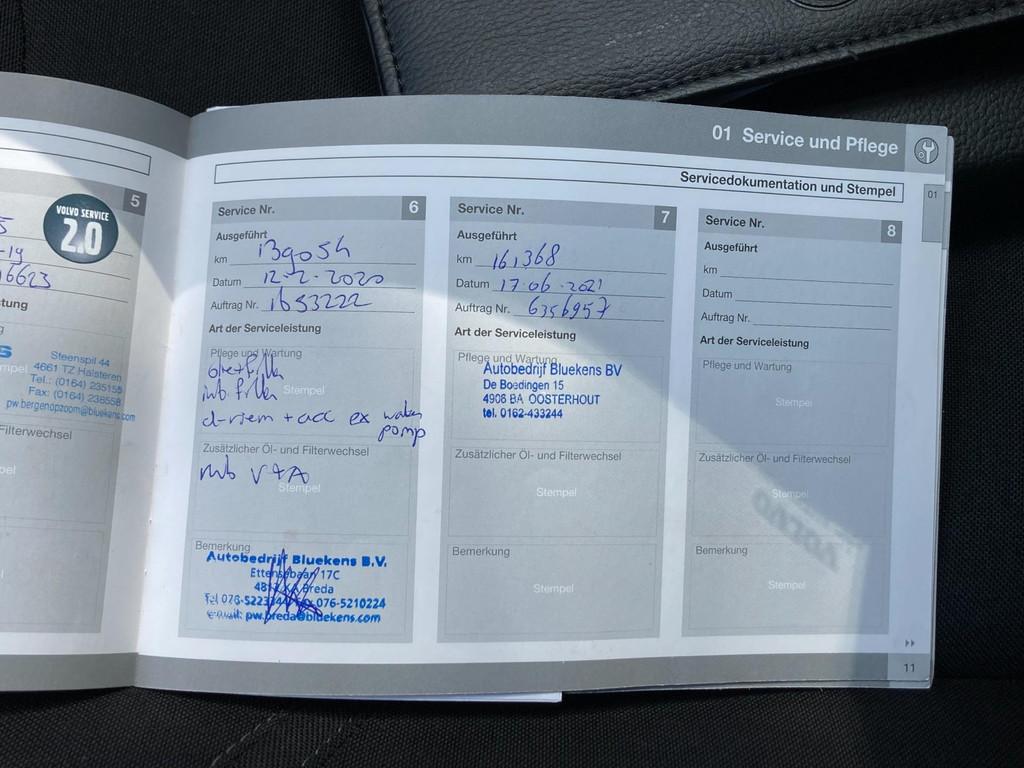 01 Service und Pflege
Servicedokumentation und Stempel
01
5
VOLVO SERVICE
2.0
-19
16623
stung
Steenspil 44
4661 TZ Halsteren
Tel.: (0164) 235155
Fax: (0164) 236558
pw.bergenopzoom@bluekens.com
Filterwechsel
Service Nr. 6
Ausgeführt
km
Datum 12-2-2020
Auftrag Nr. 1653222
Art der Serviceleistung
Pflege und Wartung
Stempel
d-riem + acc ex water
pomp
Zusätzlicher Öl- und Filterwechsel
V+A
Stempel
Bemerkung
Autobedrijf Bluekens B.V.
Ettensebaan 17C
Breda
076-5210224
e-mail: pw.breda@bluekens.com
Service Nr. 7
Ausgeführt
km 161368
Datum 17-06-2021
Auftrag Nr. 6356957
Art der Serviceleistung
Pflege und Wartung
Autobedrijf Bluekens BV
De Boedingen 15
4906 BA OOSTERHOUT
tel. 0162-433244
Zusätzlicher Öl- und Filterwechsel
Stempel
Bemerkung
Stempel
Service Nr. 8
Ausgeführt
km
Datum
Auftrag Nr.
Art der Serviceleistung
Pflege und Wartung
Stempel
Zusätzlicher Öl- und Filterwechsel
Stempel
Bemerkung
Stempel
11